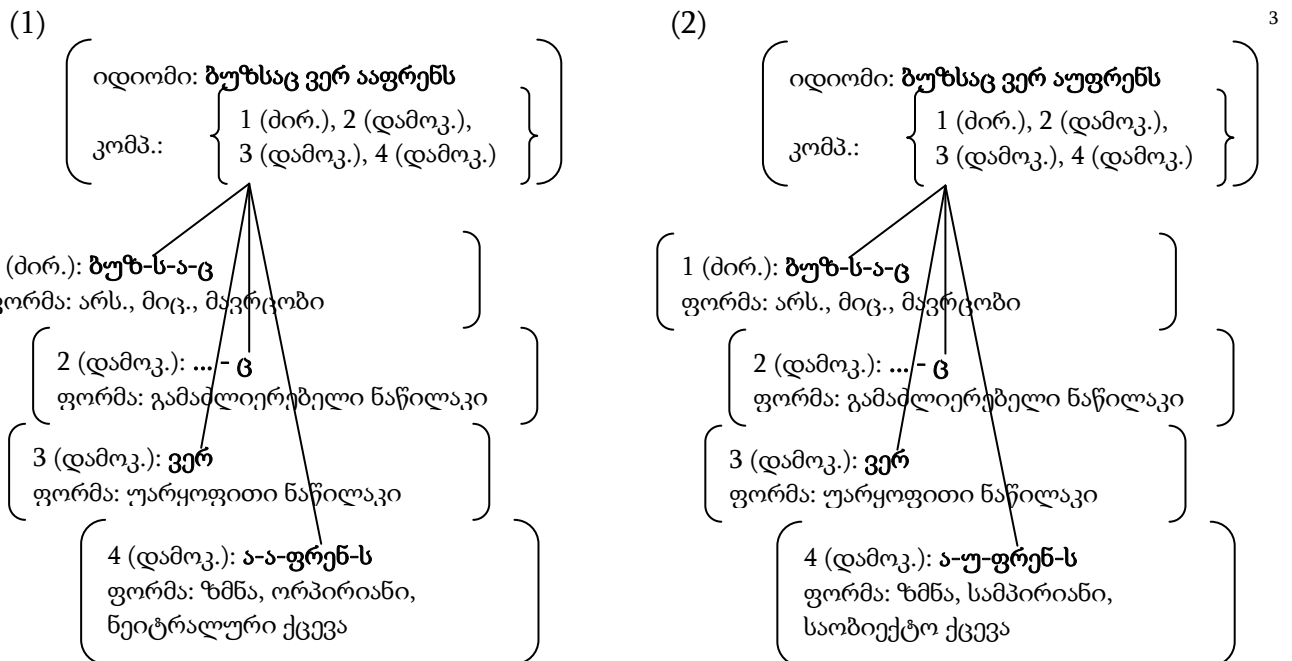 (1)
იდიომი: ბუზსაც ვერ ააფრენს
კომპ.:
1 (ძირ.), 2 (დამოკ.),
3 (დამოკ.), 4 (დამოკ.)
(ძირ.): ბუზ-ს-ა-ც
ფორმა: არს., მიც., მავრცობი
2 (დამოკ.): ... - ც
ფორმა: გამაძლიერებელი ნაწილაკი
3 (დამოკ.): ვერ
ფორმა: უარყოფითი ნაწილაკი
4 (დამოკ.): ა-ა-ფრენ-ს
ფორმა: ზმნა, ორპირიანი,
ნეიტრალური ქცევა
(2)
3
იდიომი: ბუზსაც ვერ აუფრენს
კომპ.:
1 (ძირ.), 2 (დამოკ.),
3 (დამოკ.), 4 (დამოკ.)
1 (ძირ.): ბუზ-ს-ა-ც
ფორმა: არს., მიც., მავრცობი
2 (დამოკ.): ... - ც
ფორმა: გამაძლიერებელი ნაწილაკი
3 (დამოკ.): ვერ
ფორმა: უარყოფითი ნაწილაკი
4 (დამოკ.): ა-უ-ფრენ-ს
ფორმა: ზმნა, სამპირიანი,
საობიექტო ქცევა